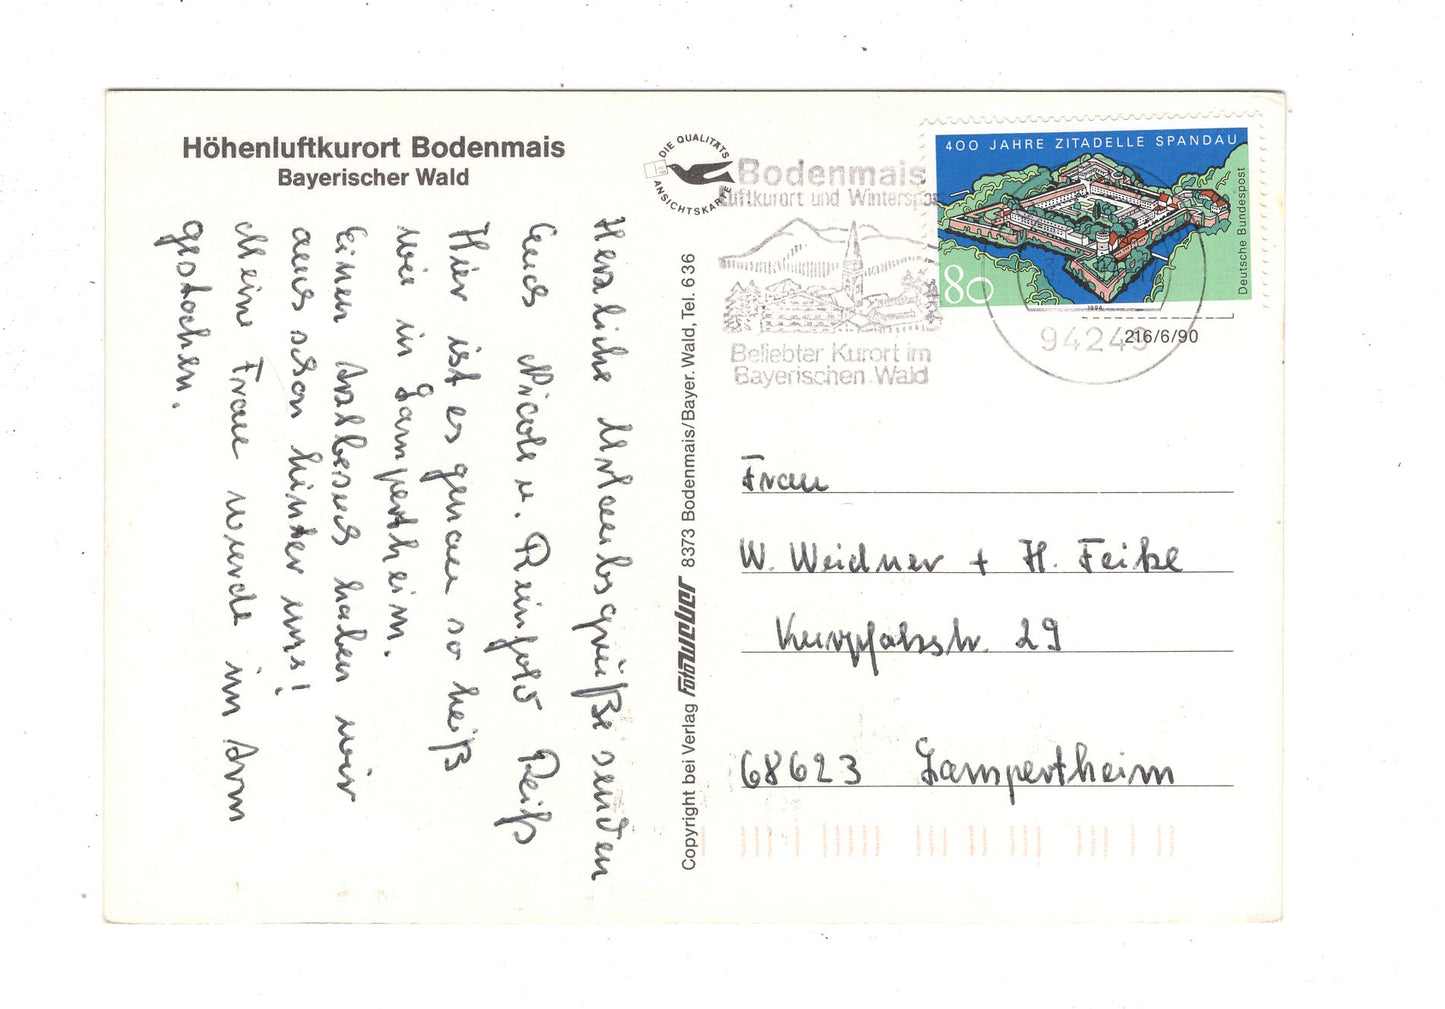 Höhenluftkurort Bodenmais
Bayerischer Wald
DIE QUALITÄTS
ANSICHTSKARTE
Herzliche Urlaubsgrüße senden
Euch Nicole u. Reinhold Reiß
Hier ist es genau so heiß
wie in Lampertheim.
Einen Arztbesuch haben wir
auch schon hinter uns!
Meine Frau wurde im Arm
gestochen.
Copyright bei Verlag foto weber 8373 Bodenmais/Bayer. Wald, Tel. 636
Bodenmais
Luftkurort und Winterspo
Beliebter Kurort im
Bayerischen Wald
400 JAHRE ZITADELLE SPANDAU
Deutsche Bundespost
80
1994
94249
216/6/90
Frau
W. Weidner + H. Feike
Kurpfalzstr. 29
68623 Lampertheim